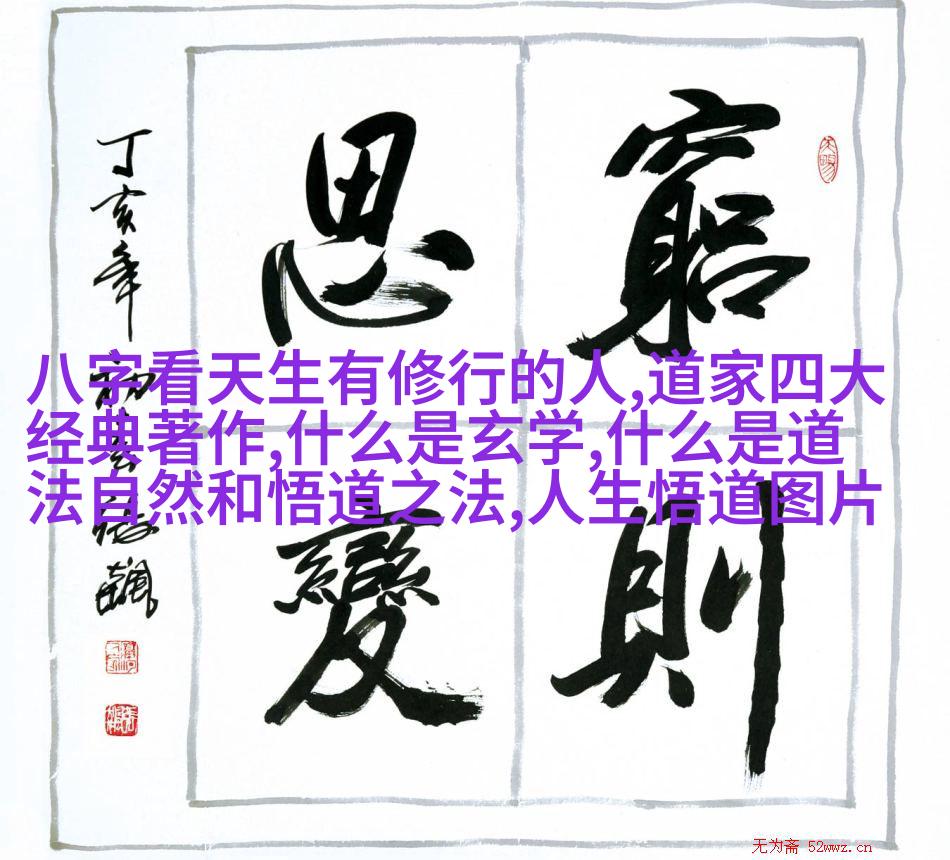 窮則
思變
丁亥年
八字看天生有修行的人,道家四大
经典著作,什么是玄学,什么是道
法自然和悟道之法,人生悟道图片
无为斋 52wwz.cn